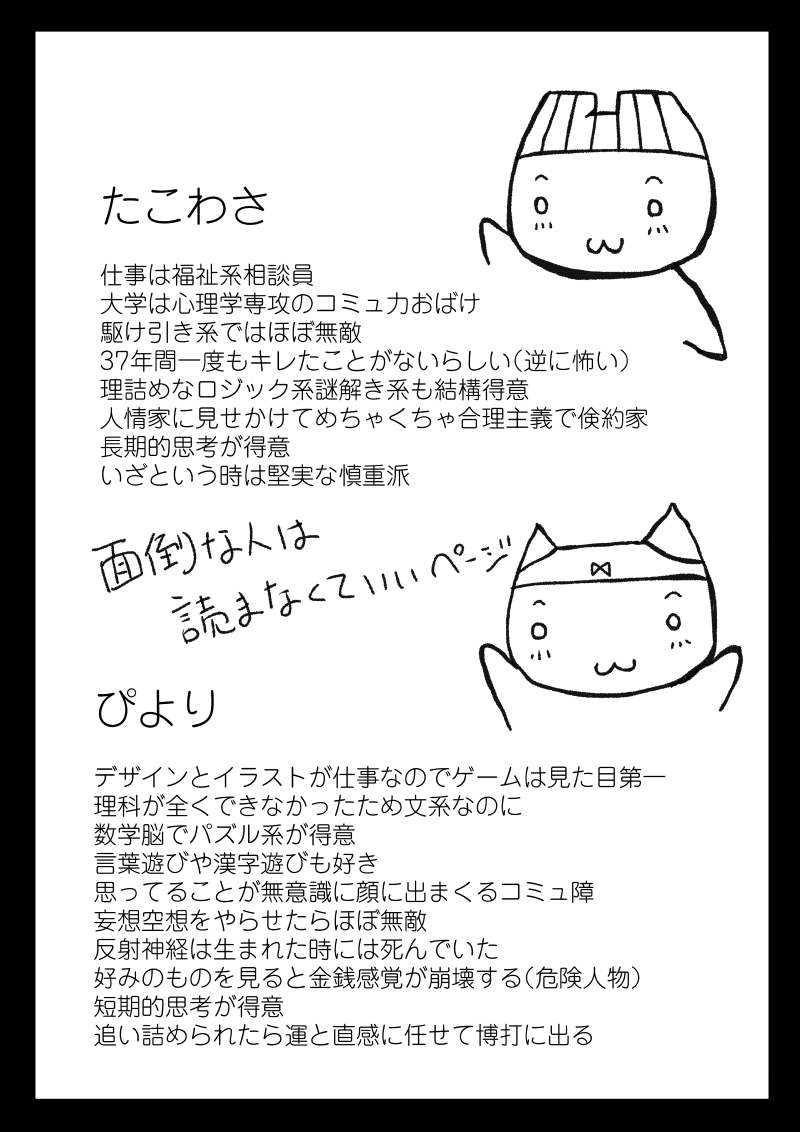 たこわさ
仕事は福祉系相談員
大学は心理学専攻のコミュ力おばけ
駆け引き系ではほぼ無敵
37年間一度もキレたことがないらしい(逆に怖い)
理詰めなロジック系謎解き系も結構得意
人情家に見せかけてめちゃくちゃ合理主義で倹約家
長期的思考が得意
いざという時は堅実な慎重派
面倒な人は
読まなくていいページ
ぴより
デザインとイラストが仕事なのでゲームは見た目第一
理科が全くできなかったため文系なのに
数学脳でパズル系が得意
言葉遊びや漢字遊びも好き
思ってることが無意識に顔に出まくるコミュ障
妄想空想をやらせたらほぼ無敵
反射神経は生まれた時には死んでいた
好みのものを見ると金銭感覚が崩壊する(危険人物)
短期的思考が得意
追い詰められたら運と直感に任せて博打に出る